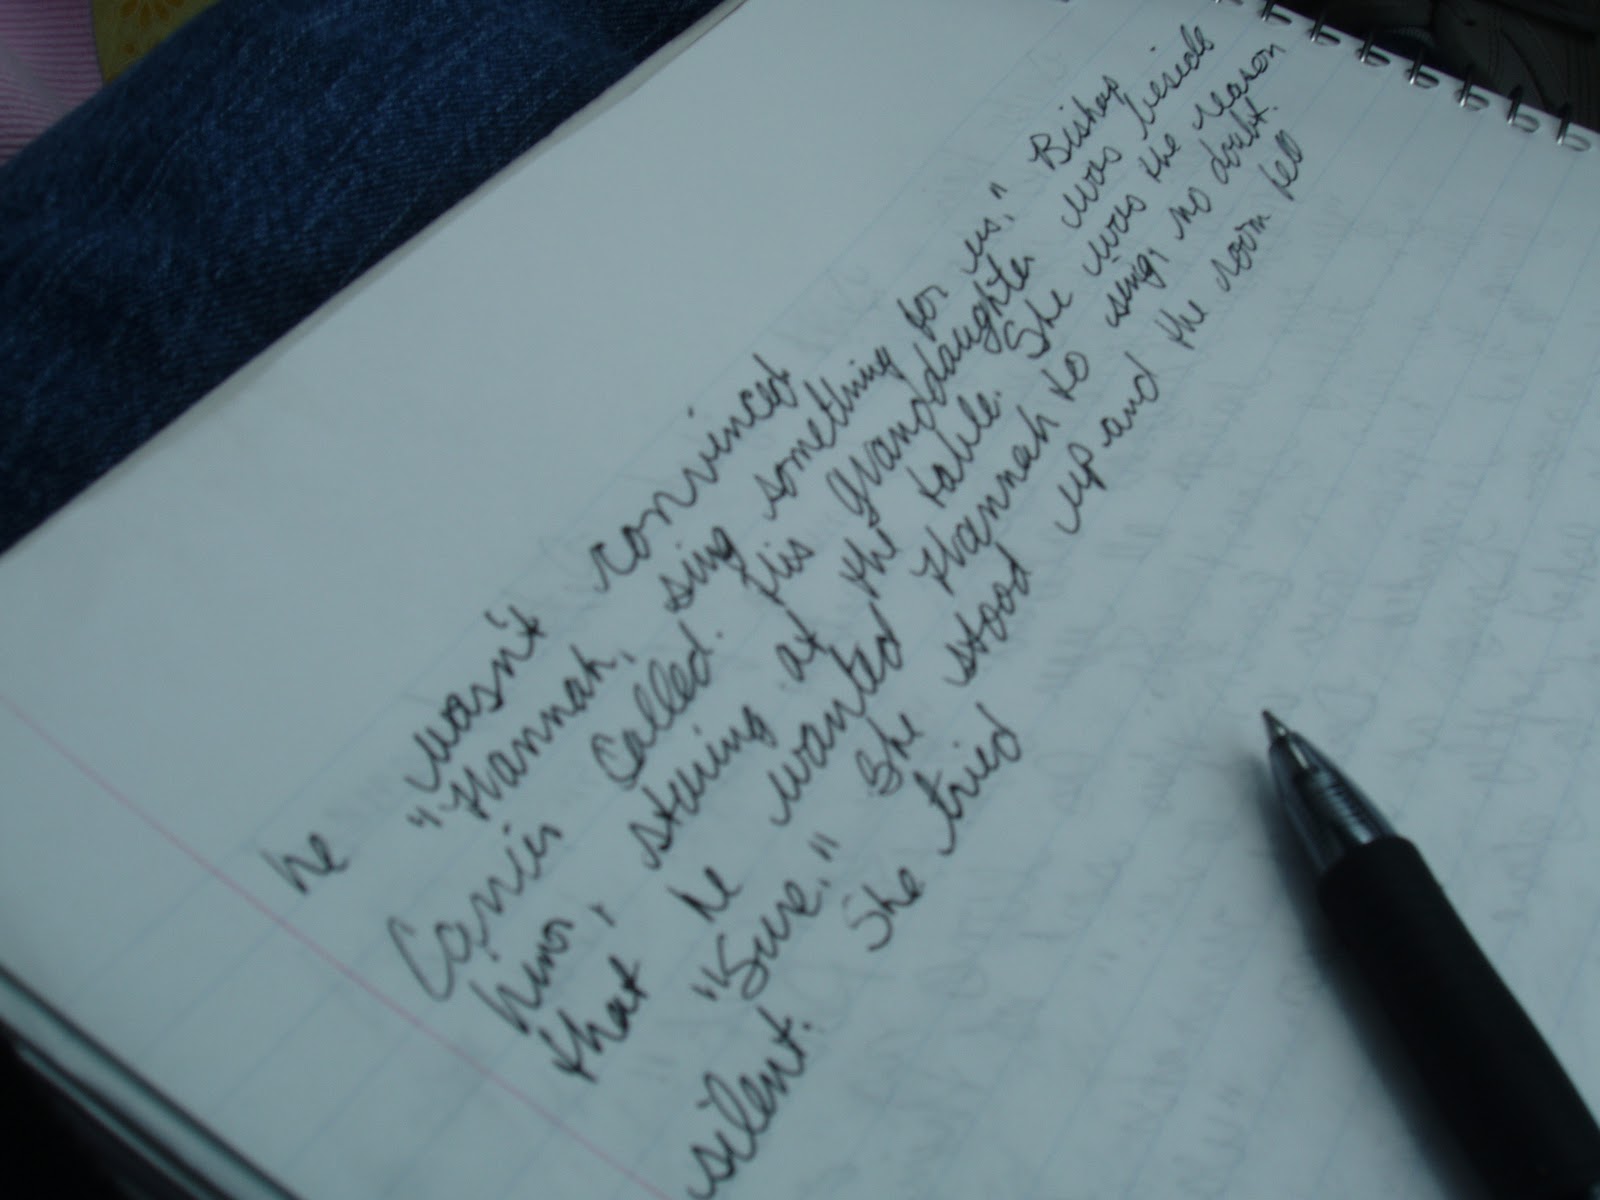 he wasn't convinced
"Hannah, sing something for us," Bishop
Carrier called. His granddaughter was beside
him, staring at the table. She was the reason
that he wanted Hannah to sing, no doubt.
"Sure." She stood up and the room fell
silent. She tried